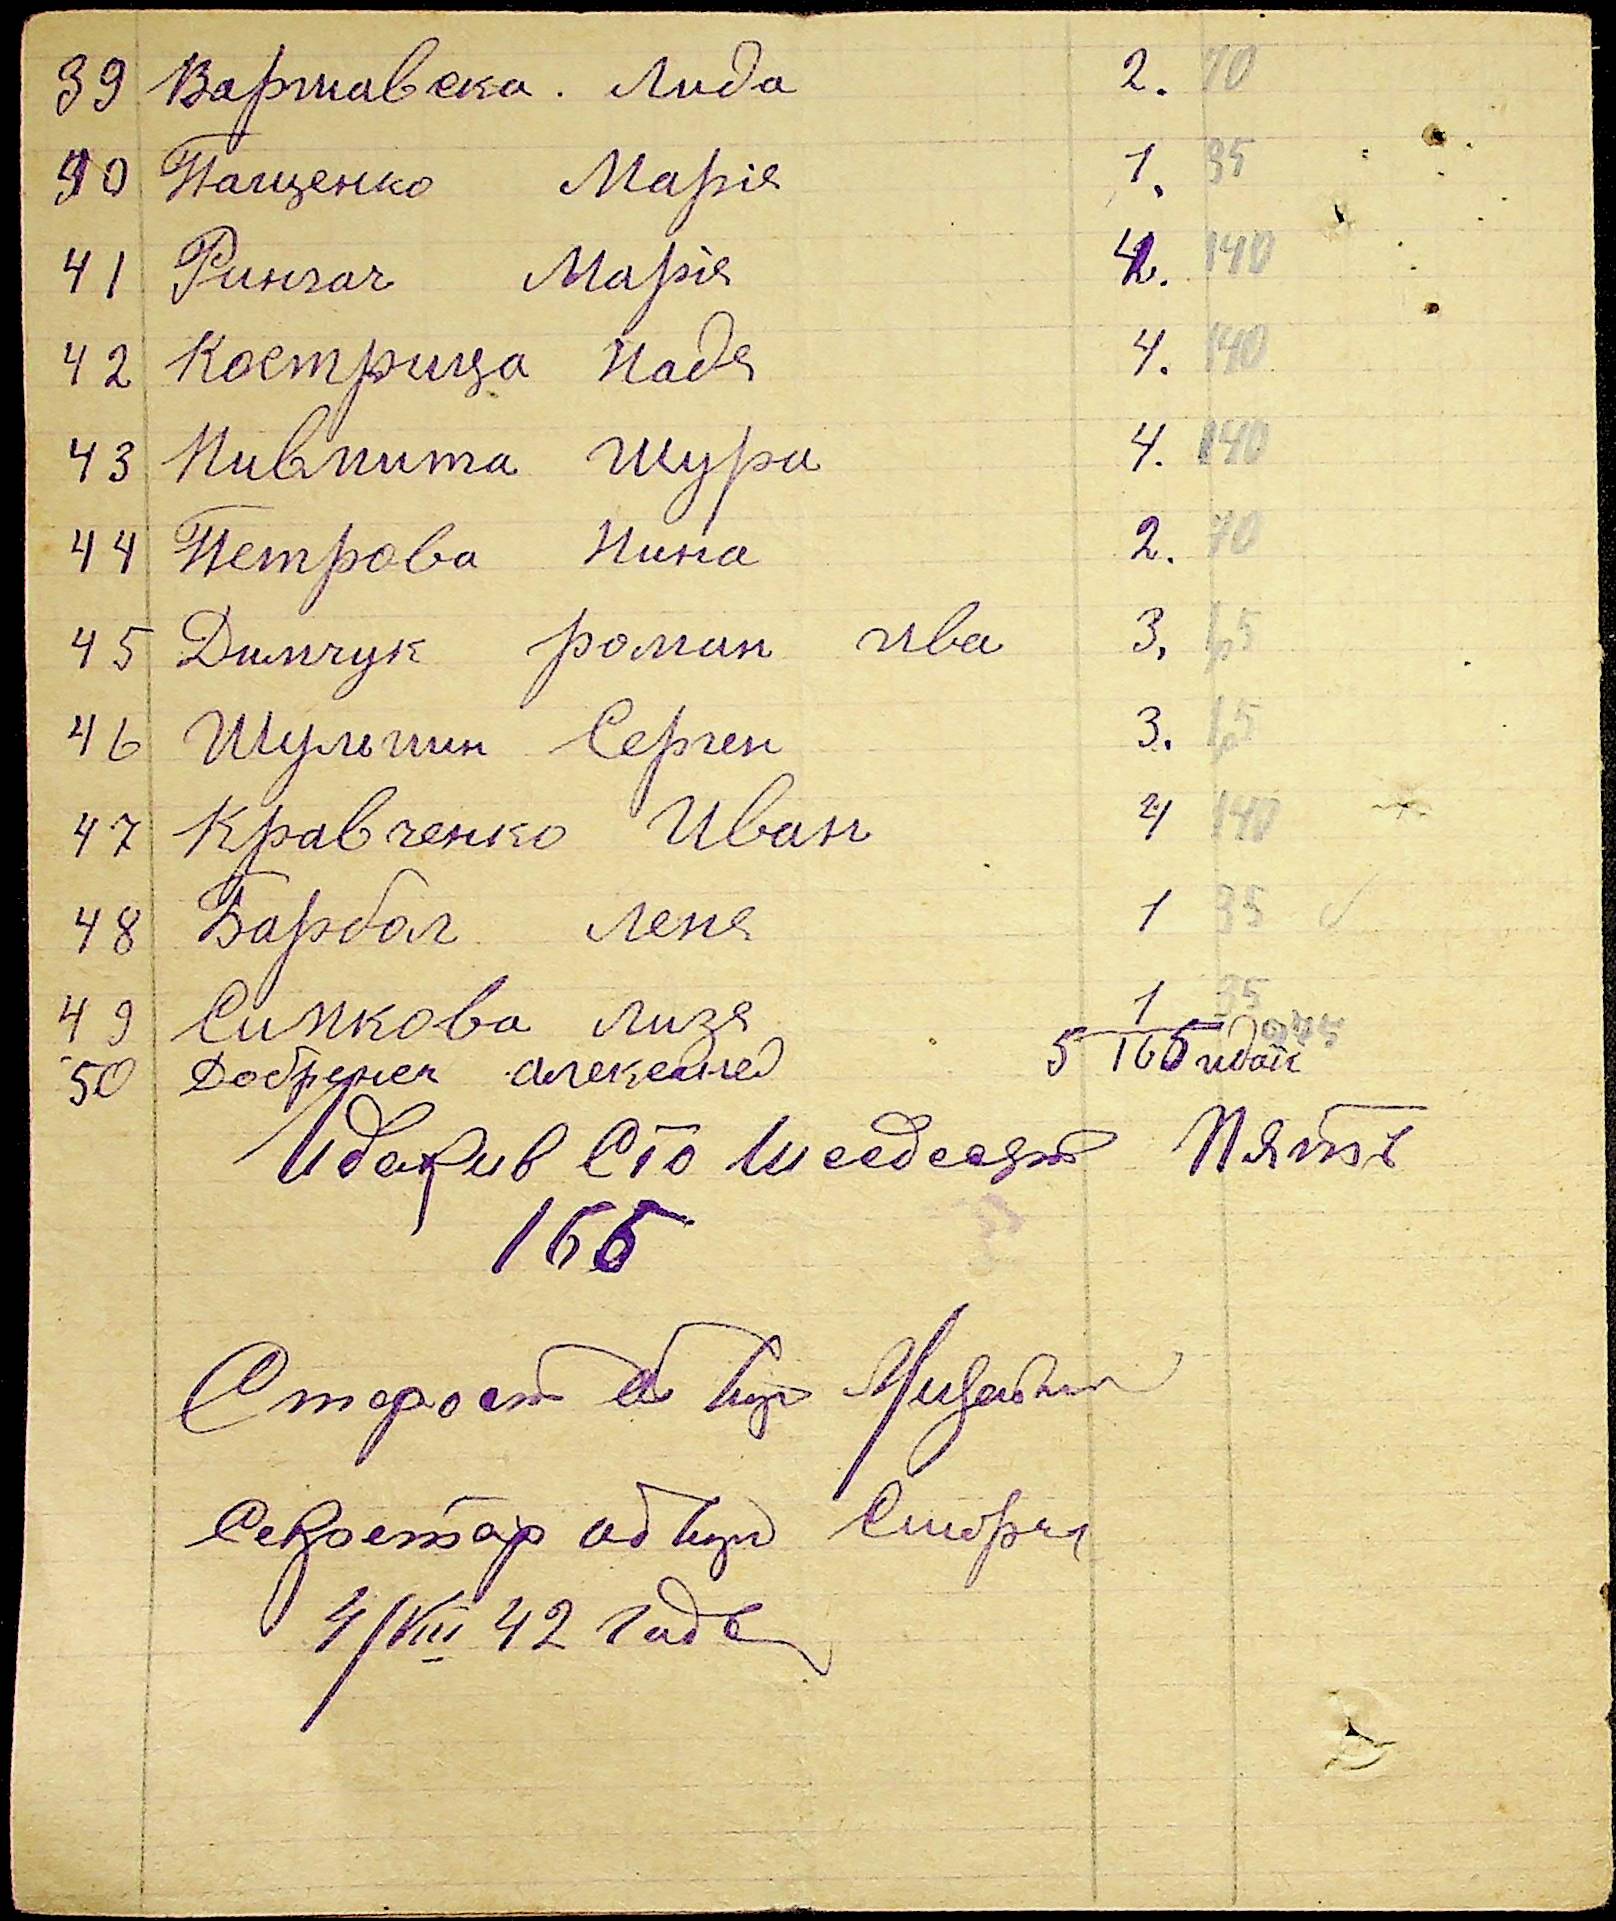 39 Варшавска. Лида 2. 70
40 Пащенко Марія 1. 35
41 Рингач Марія 4. 140
42 Кострица Надя 4. 140
43 Пивпита Шура 4. 140
44 Петрова Нина 2. 70
45 Димчук роман ива 3.
46 Шульшин Сергеи 3.
47 Кравченко Иван 4 140
48 Барбол Леня 1 35
49 Симкова Лизя 1 35
50 5 165 идоїк
Идоїкив Сто Шесдесят Пять
165
Старост
Секретар общ
4/VIII 42 Года